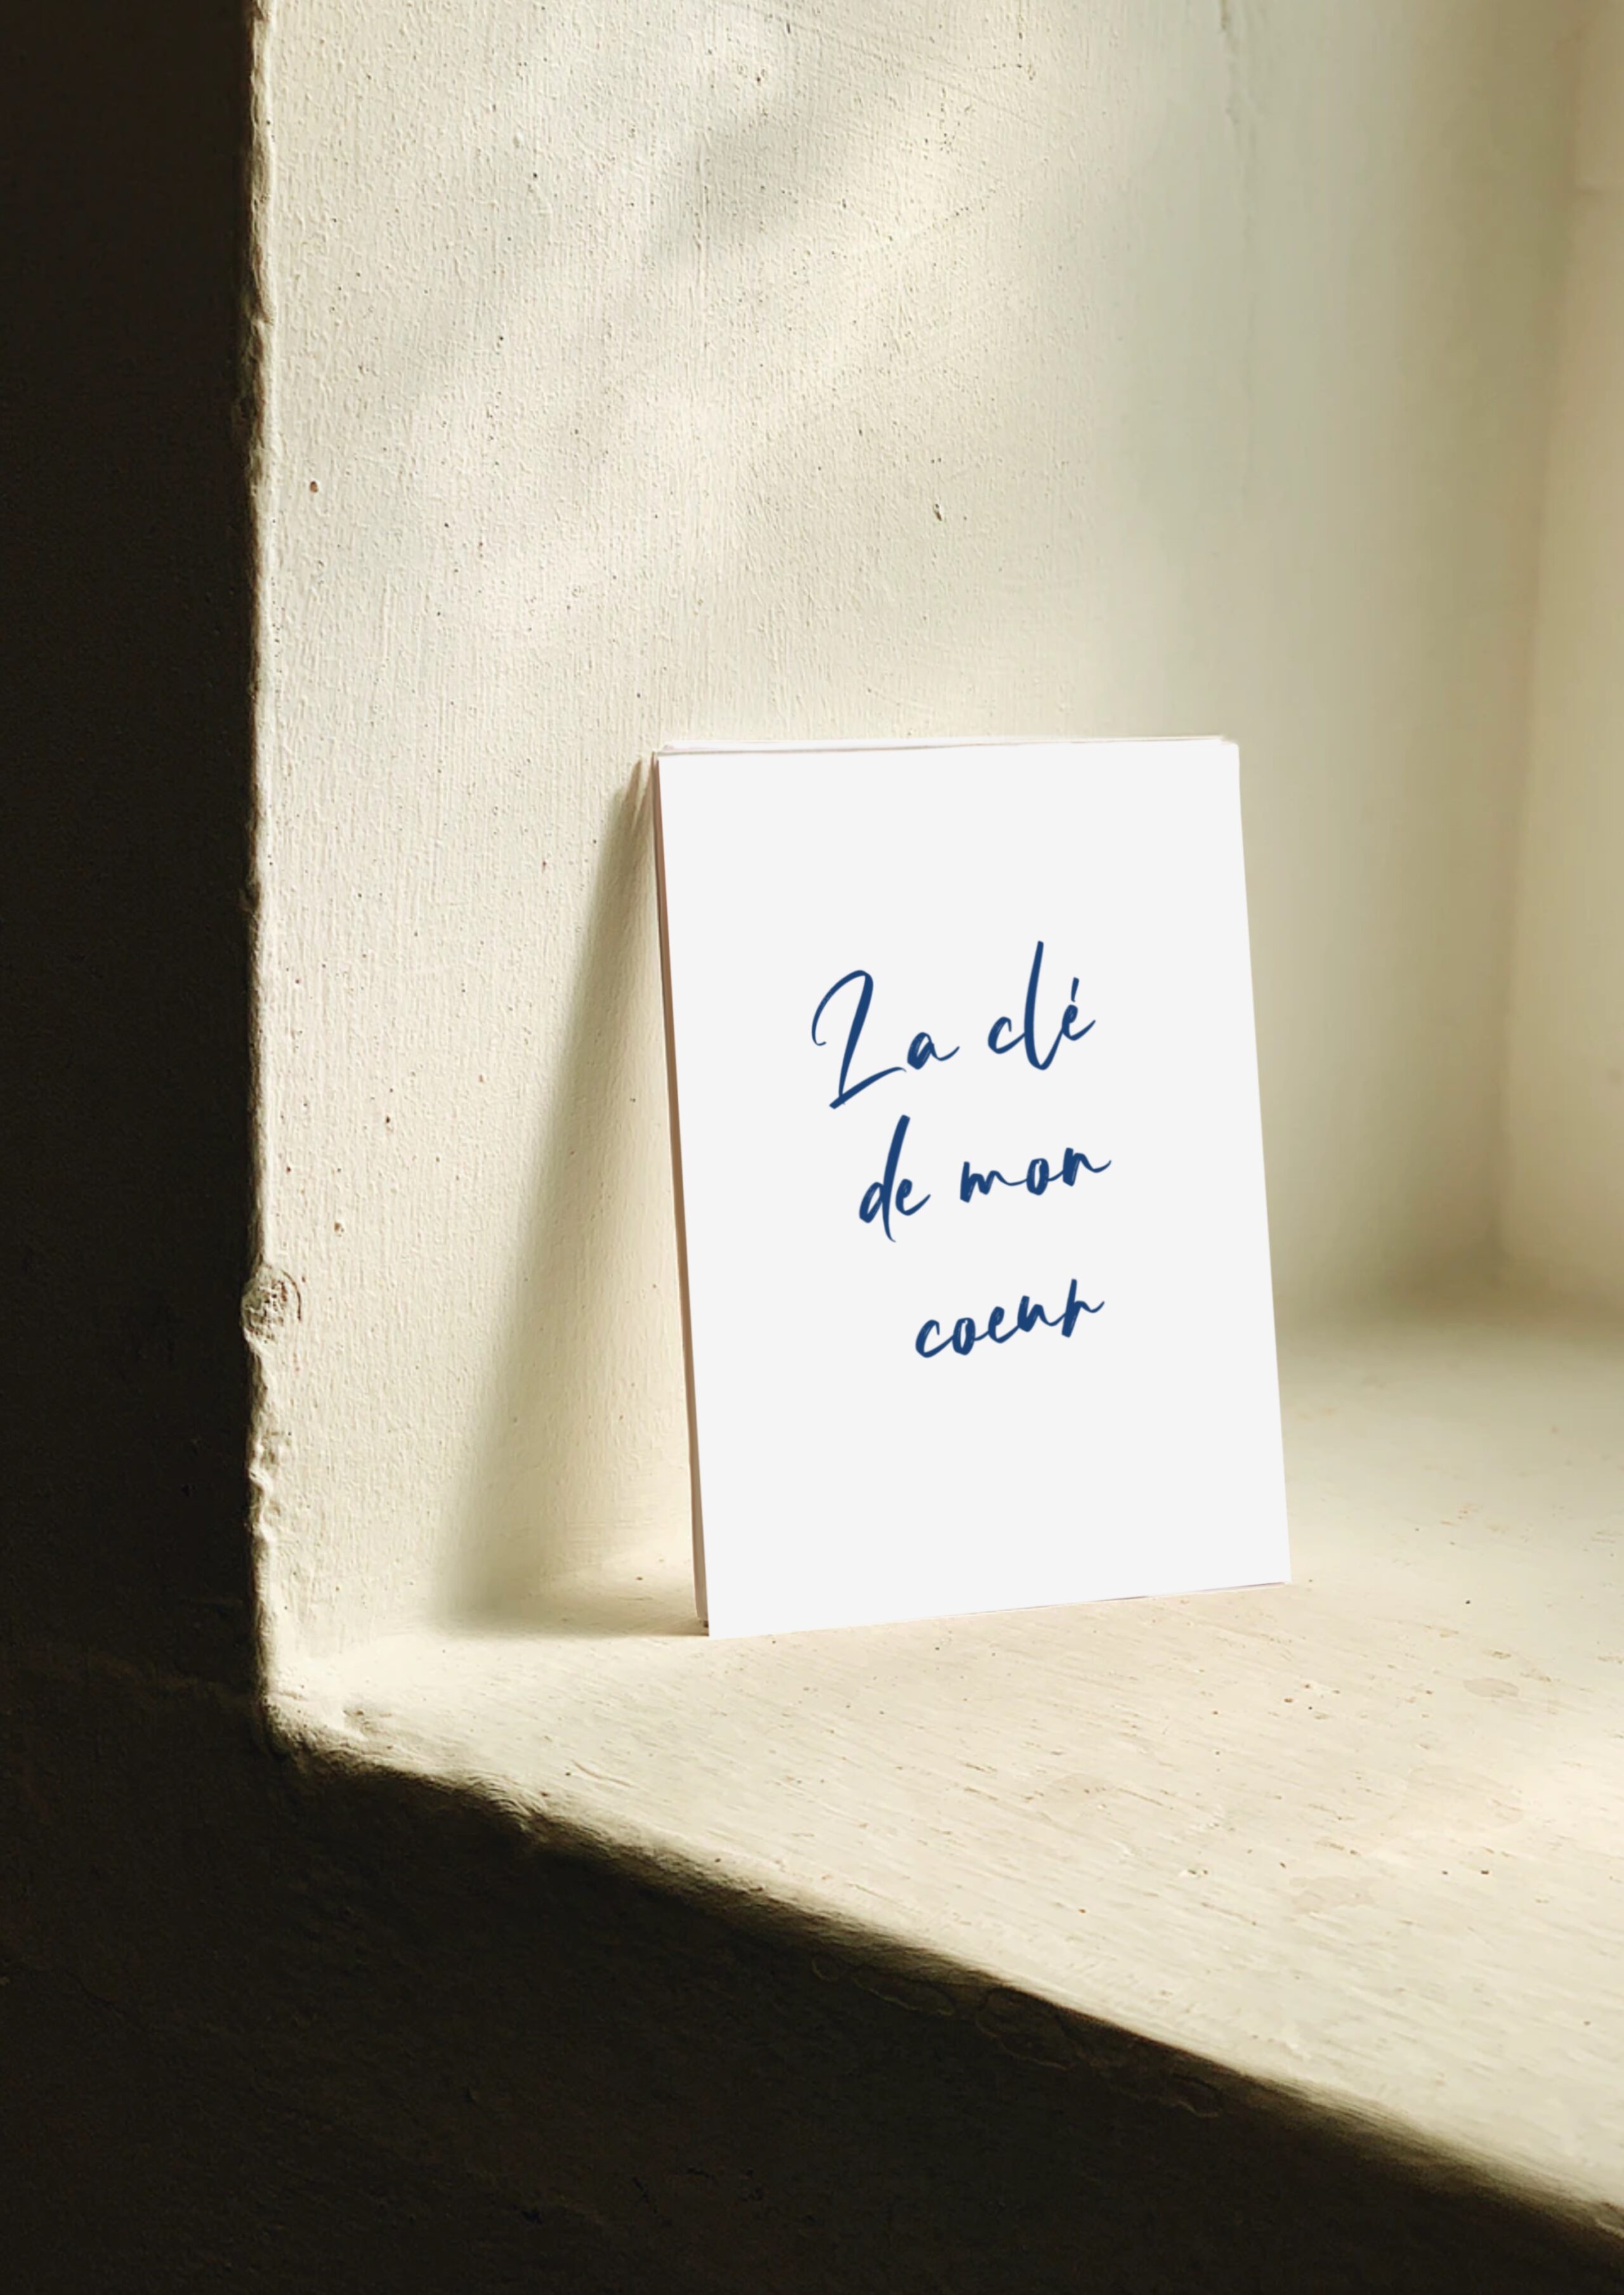 La clé
de mon
coeur